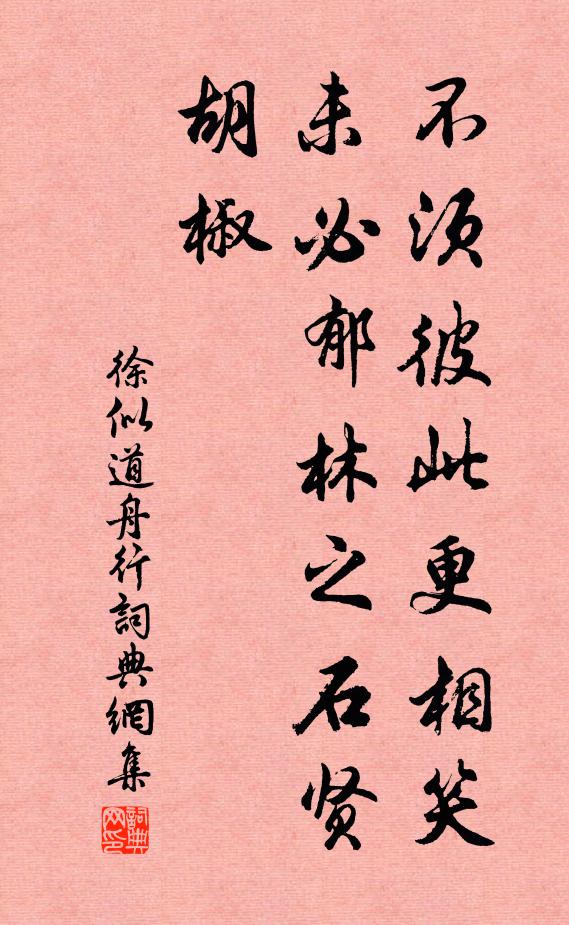 不须彼此更相笑
未必郁林之石贤
胡椒
徐似道舟行詞典網集
詞典网印